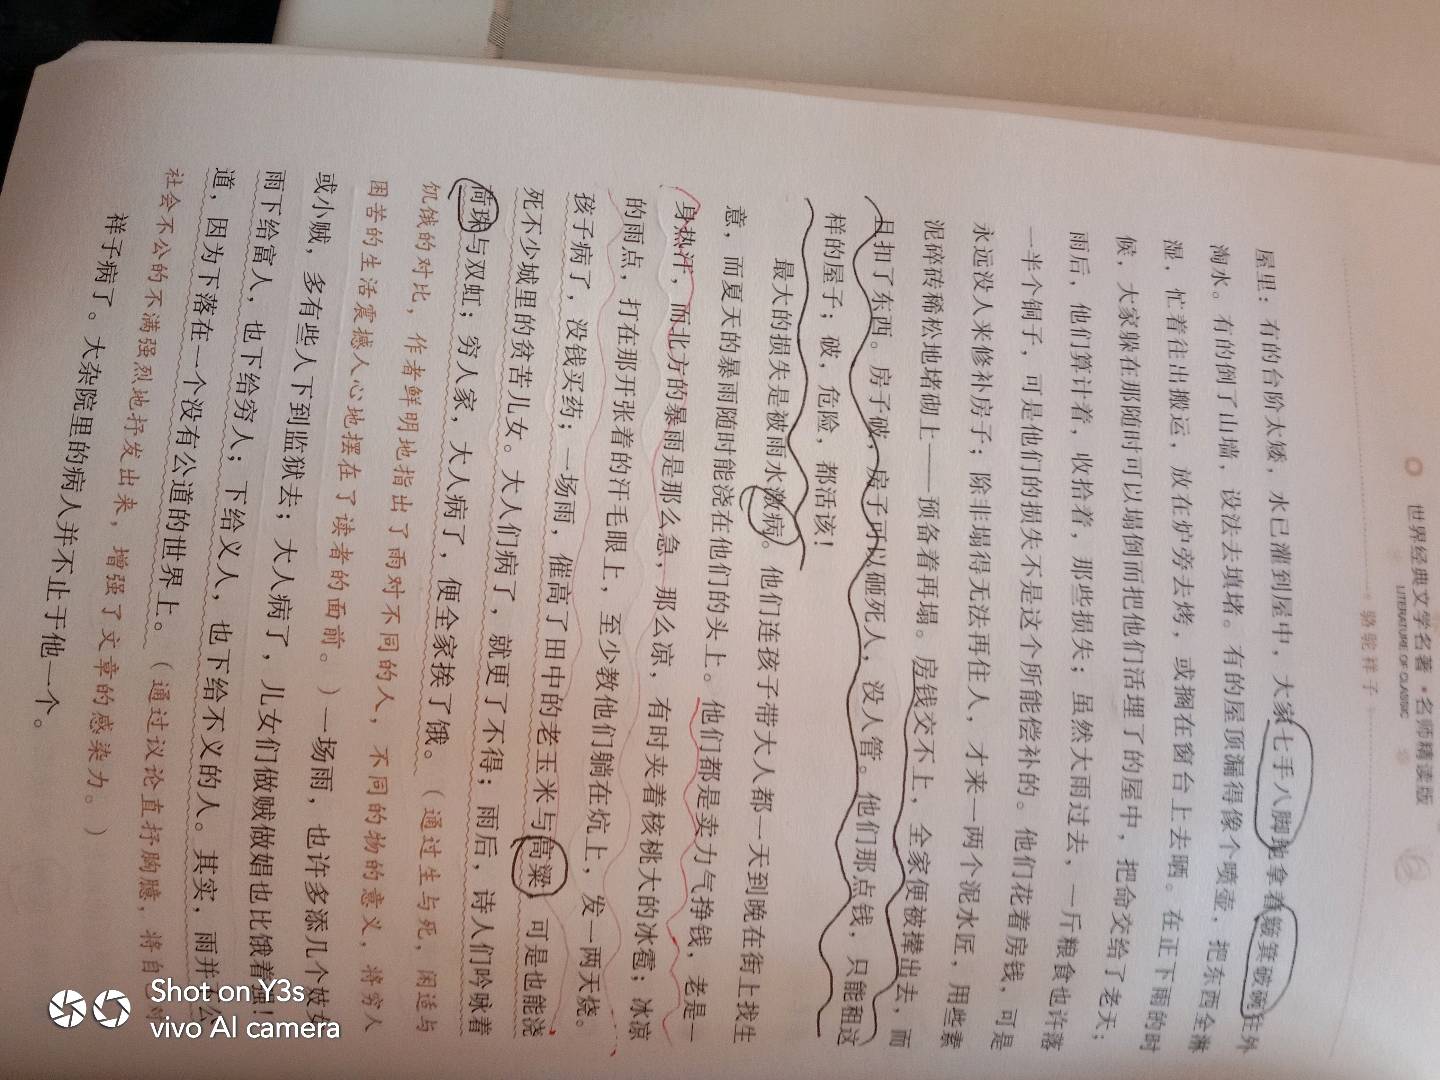 世界经典文学名著·名师精读版
LITERATURE OF CLASSIC
骆驼祥子
屋里：有的台阶太矮，水已灌到屋中，大家七手八脚地拿着簸箕破碗往外
淘水。有的倒了山墙，设法去填堵。有的屋顶漏得像个喷壶，把东西全淋
湿，忙着往出搬运，放在炉旁去烤，或搁在窗台上去晒。在正下雨的时
候，大家躲在那随时可以塌倒而把他们活埋了的屋中，把命交给了老天；
雨后，他们算计着，收拾着，那些损失；虽然大雨过去，一斤粮食也许落
一半个铜子，可是他们的损失不是这个所能偿补的。他们花着房钱，可是
永远没人来修补房子；除非塌得无法再住人，才来一两个泥水匠，用些素
泥碎砖稀松地堵砌上——预备着再塌。房钱交不上，全家便被撵出去，而
且扣了东西。房子破，房子可以砸死人，没人管。他们那点钱，只能租这
样的屋子；破，危险，都活该！
最大的损失是被雨水激病。他们连孩子带大人都一天到晚在街上找生
意，而夏天的暴雨随时能浇在他们的头上。他们都是卖力气挣钱，老是一
身热汗，而北方的暴雨是那么急，那么凉，有时夹着核桃大的冰雹；冰凉
的雨点，打在那开张着的汗毛眼上，至少教他们躺在炕上，发一两天烧。
孩子病了，没钱买药；一场雨，催高了田中的老玉米与高粱，可是也能浇
死不少城里的贫苦儿女。大人们病了，就更了不得；雨后，诗人们吟咏着
荷珠与双虹；穷人家，大人病了，便全家挨了饿。（通过生与死，闲适与
饥饿的对比，作者鲜明地指出了雨对不同的人，不同的物的意义，将穷人
困苦的生活震撼人心地摆在了读者的面前。）一场雨，也许多添几个妓女
或小贼，多有些人下到监狱去；大人病了，儿女们做贼做娼也比饿着强！
雨下给富人，也下给穷人；下给义人，也下给不义的人。其实，雨并不公
道，因为下落在一个没有公道的世界上。（通过议论直抒胸臆，将自己对
社会不公的不满强烈地抒发出来，增强了文章的感染力。）
祥子病了。大杂院里的病人并不止于他一个。
Shot on Y3s
vivo AI camera